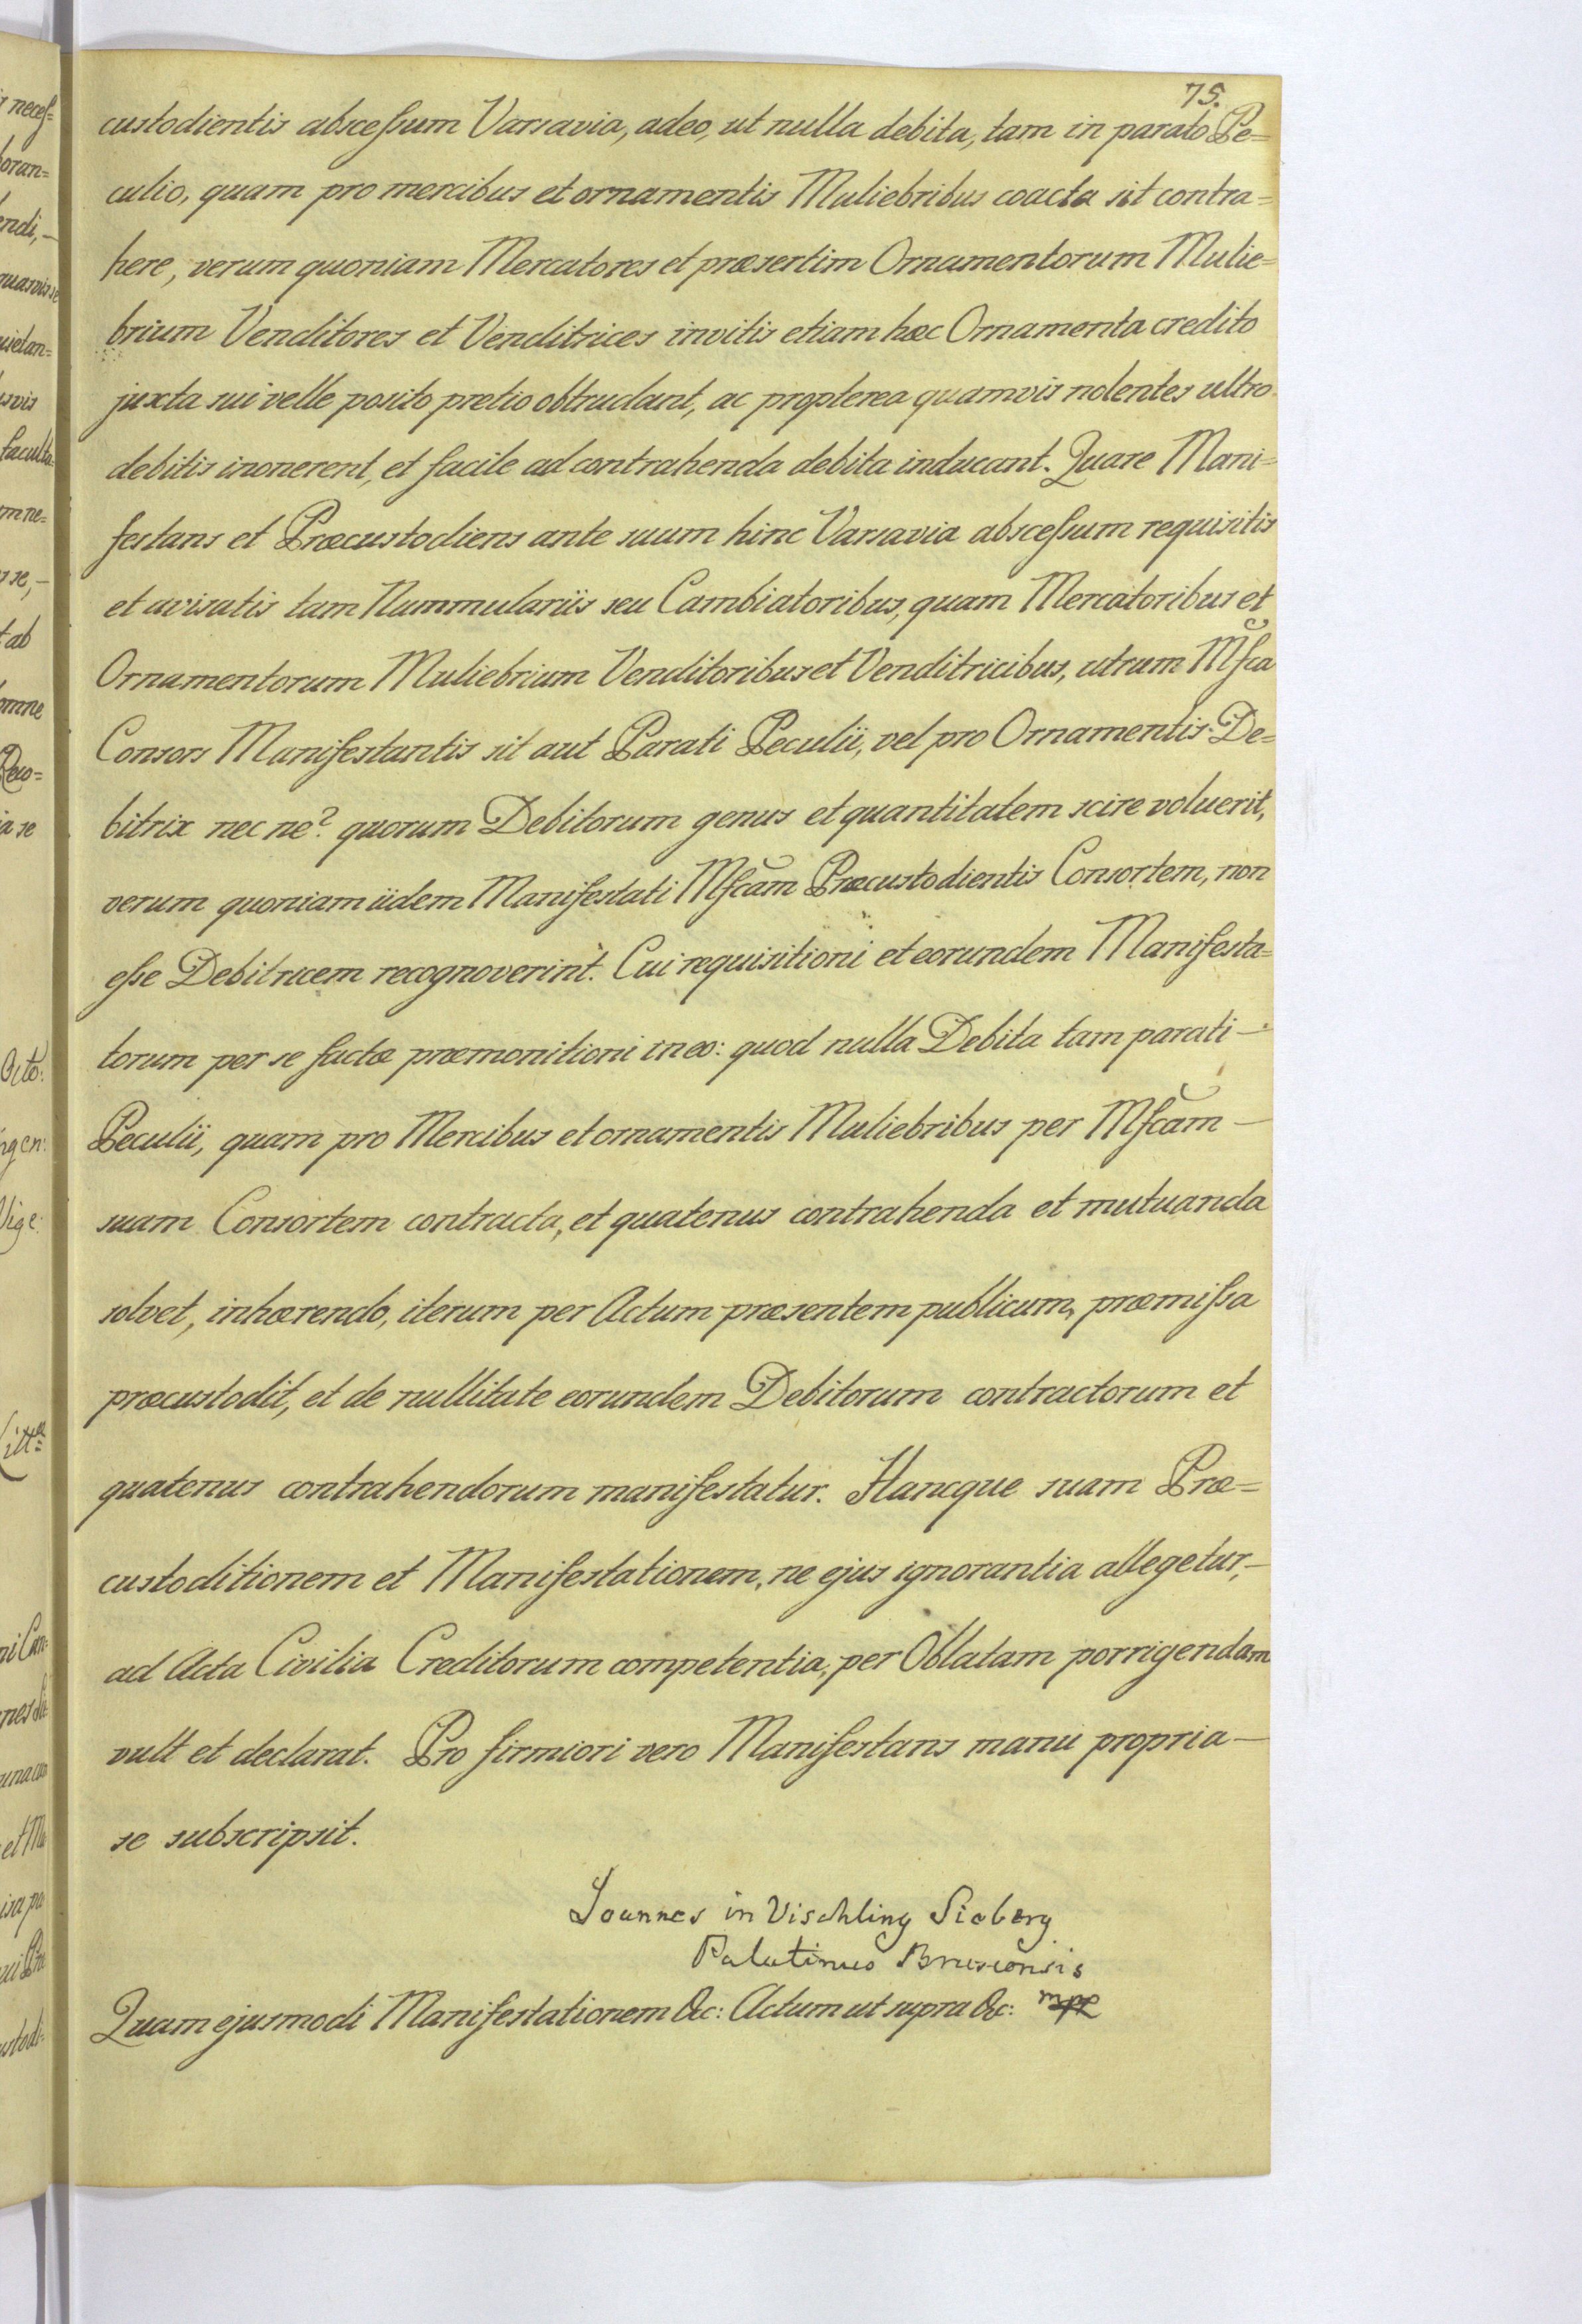 75.
custodientis abscessum Varsavia, adeo, ut nulla debita, tam in parato Pe=
culio, quam pro mercibus et ornamentis Muliebribus coacta sit contra=
here, verum quoniam Mercatores et præsertim Ornamentorum Mulie=
brium Venditores et Venditrices invitis etiam hæc Ornamenta credito
juxta sui velle posito pretio obtrudant, ac propterea quamvis nolentes ultro
debitis inonerent, et facile ad contrahenda debita inducant. Quare Mani=
festans et Præcustodiens ante suum hinc Varsavia abscessum requisitis
et avisatis tam Nummulariis seu Cambiatoribus, quam Mercatoribus et
Ornamentorum Muliebrium Venditoribus et Venditricibus, utrum Mfca
Consors Manifestantis sit aut Parati Peculii, vel pro Ornamentis De=
bitrix nec ne? quorum Debitorum genus et quantitatem scire voluerit,
verum quoniam iidem Manifestati Mfcam Præcustodientis Consortem, non
esse Debitricem recognoverint. Cui requisitioni et eorundem Manifesta=
torum per se factæ præmonitioni in eo: quod nulla Debita tam parati —
Peculii, quam pro Mercibus et ornamentis Muliebribus per Mfcam —
suam Consortem contracta, et quatenus contrahenda et mutuanda
solvet, inhærendo, iterum per Actum præsentem publicum, præmissa
præcustodit, et de nullitate eorundem Debitorum contractorum et
quatenus contrahendorum manifestatur. Hancque suam Præ=
custoditionem et Manifestationem, ne ejus ignorantia allegetur, —
ad Acta Civilia Creditorum competentia, per Oblatam porrigendam
vult et declarat. Pro firmiori vero Manifestans manu propria —
se subscripsit.
Joannes in Vischling Sieberg
Palatinus Brescensis
Quam ejusmodi Manifestationem &c: Actum ut supra &c: mpp